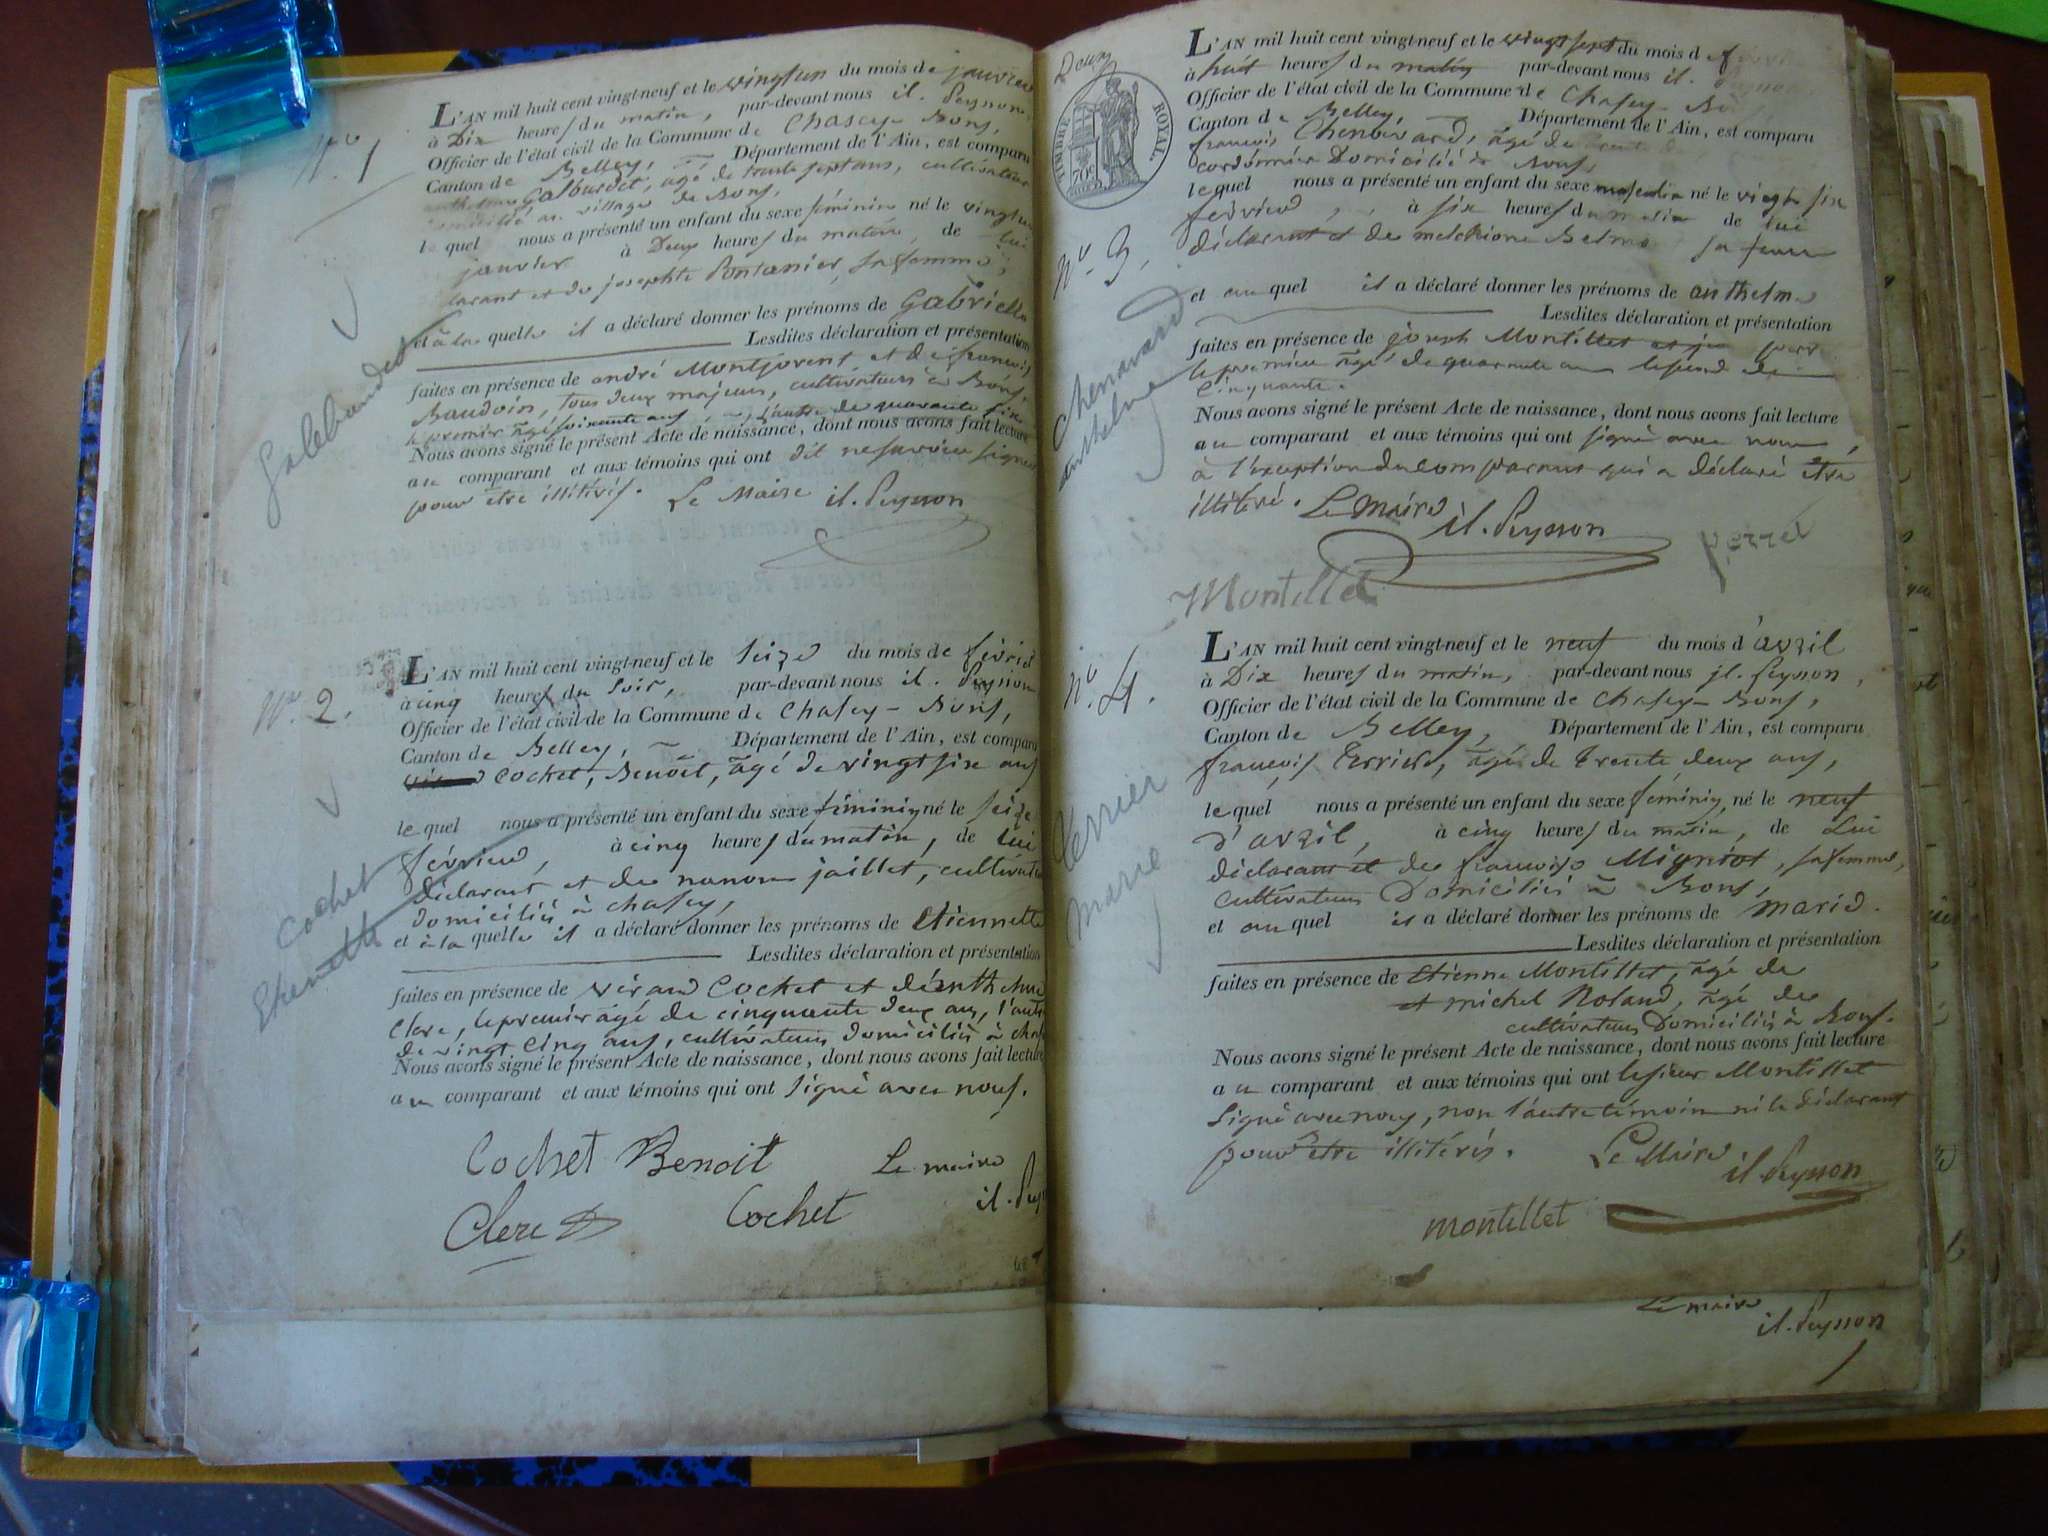 N.o 1
L'AN mil huit cent vingt-neuf et le vingtun du mois de janvier
à Dix heures du matin, par-devant nous il. Peysson
Officier de l'état civil de la Commune de Chasey-Bons,
Canton de Belley, Département de l'Ain, est comparu
anthelme Galburdet, agé de trente sept ans, cultivateur
domicilié au village de Bons,
le quel nous a présenté un enfant du sexe féminin né le vingtun
janvier à Deux heures du matin, de lui
déclarant et de josephte Pontanier, sa femme,
et à la quelle il a déclaré donner les prénoms de Gabrielle
Lesdites déclaration et présentation
faites en présence de andré Montjovent et de françois
Baudoin, tous deux majeurs, cultivateurs à Bons,
le premier agé soixante ans, l'autre de quarante six
Nous avons signé le présent Acte de naissance, dont nous avons fait lecture
au comparant et aux témoins qui ont dit ne savoir signer
pour être illitérés. Le Maire il. Peysson
N.o 2.
L'AN mil huit cent vingt-neuf et le seize du mois de février
à cinq heures du soir, par-devant nous il. Peysson
Officier de l'état civil de la Commune de Chasey-Bons,
Canton de Belley, Département de l'Ain, est comparu
Cochet, Benoît, agé de vingt six ans
le quel nous a présenté un enfant du sexe féminin né le seize
février, à cinq heures du matin, de lui
déclarant et de nanon jaillet, cultivateurs
domiciliés à chasey,
et à la quelle il a déclaré donner les prénoms de Etiennette
Lesdites déclaration et présentation
faites en présence de vérand Cochet et d'anthelme
Clerc, le premier agé de cinquante deux ans, l'autre
de vingt cinq ans, cultivateurs domiciliés à chasey
Nous avons signé le présent Acte de naissance, dont nous avons fait lecture
au comparant et aux témoins qui ont signé avec nous.
Cochet Benoit Le maire
Clerc Cochet il. Pey
Cochet
Etiennette
TIMBRE ROYAL
70c
N.o 3.
L'AN mil huit cent vingt-neuf et le vingt sept du mois de
à huit heures du matin par-devant nous il.
Officier de l'état civil de la Commune de Chasey-Bons
Canton de Belley, Département de l'Ain, est comparu
françois Chenavard, agé de trente
cordonnier Domicilié à Bons,
le quel nous a présenté un enfant du sexe masculin né le vingt six
février, à six heures du matin de lui
déclarant et de melchione sa femme
et au quel il a déclaré donner les prénoms de anthelme
Lesdites déclaration et présentation
faites en présence de joseph Montillet
le premier agé de quarante ans le second de
cinquante.
Nous avons signé le présent Acte de naissance, dont nous avons fait lecture
au comparant et aux témoins qui ont signé avec nous,
à l'exception du comparant qui a déclaré être
illitéré. Le Maire il. Peysson
Montillet perret
Chenavard
anthelme
N.o 4.
L'AN mil huit cent vingt-neuf et le neuf du mois d'avril
à Dix heures du matin, par-devant nous il. Peysson,
Officier de l'état civil de la Commune de Chasey-Bons,
Canton de Belley, Département de l'Ain, est comparu
françois Terrier, agé de trente deux ans,
le quel nous a présenté un enfant du sexe féminin, né le neuf
d'avril, à cinq heures du matin, de Lui
déclarant et de françoise Migniot, sa femme,
cultivateurs Domiciliés à Bons,
et au quel il a déclaré donner les prénoms de marie.
Lesdites déclaration et présentation
faites en présence de Etienne Montillet, agé de
et michel Roland, agé de
cultivateurs Domiciliés à Bons.
Nous avons signé le présent Acte de naissance, dont nous avons fait lecture
au comparant et aux témoins qui ont le sieur Montillet
Signé avec nous, non l'autre témoin ni le déclarant
pour être illitérés. Le Maire il. Peysson
montillet
Terrier
marie
Le maire
il. Peysson